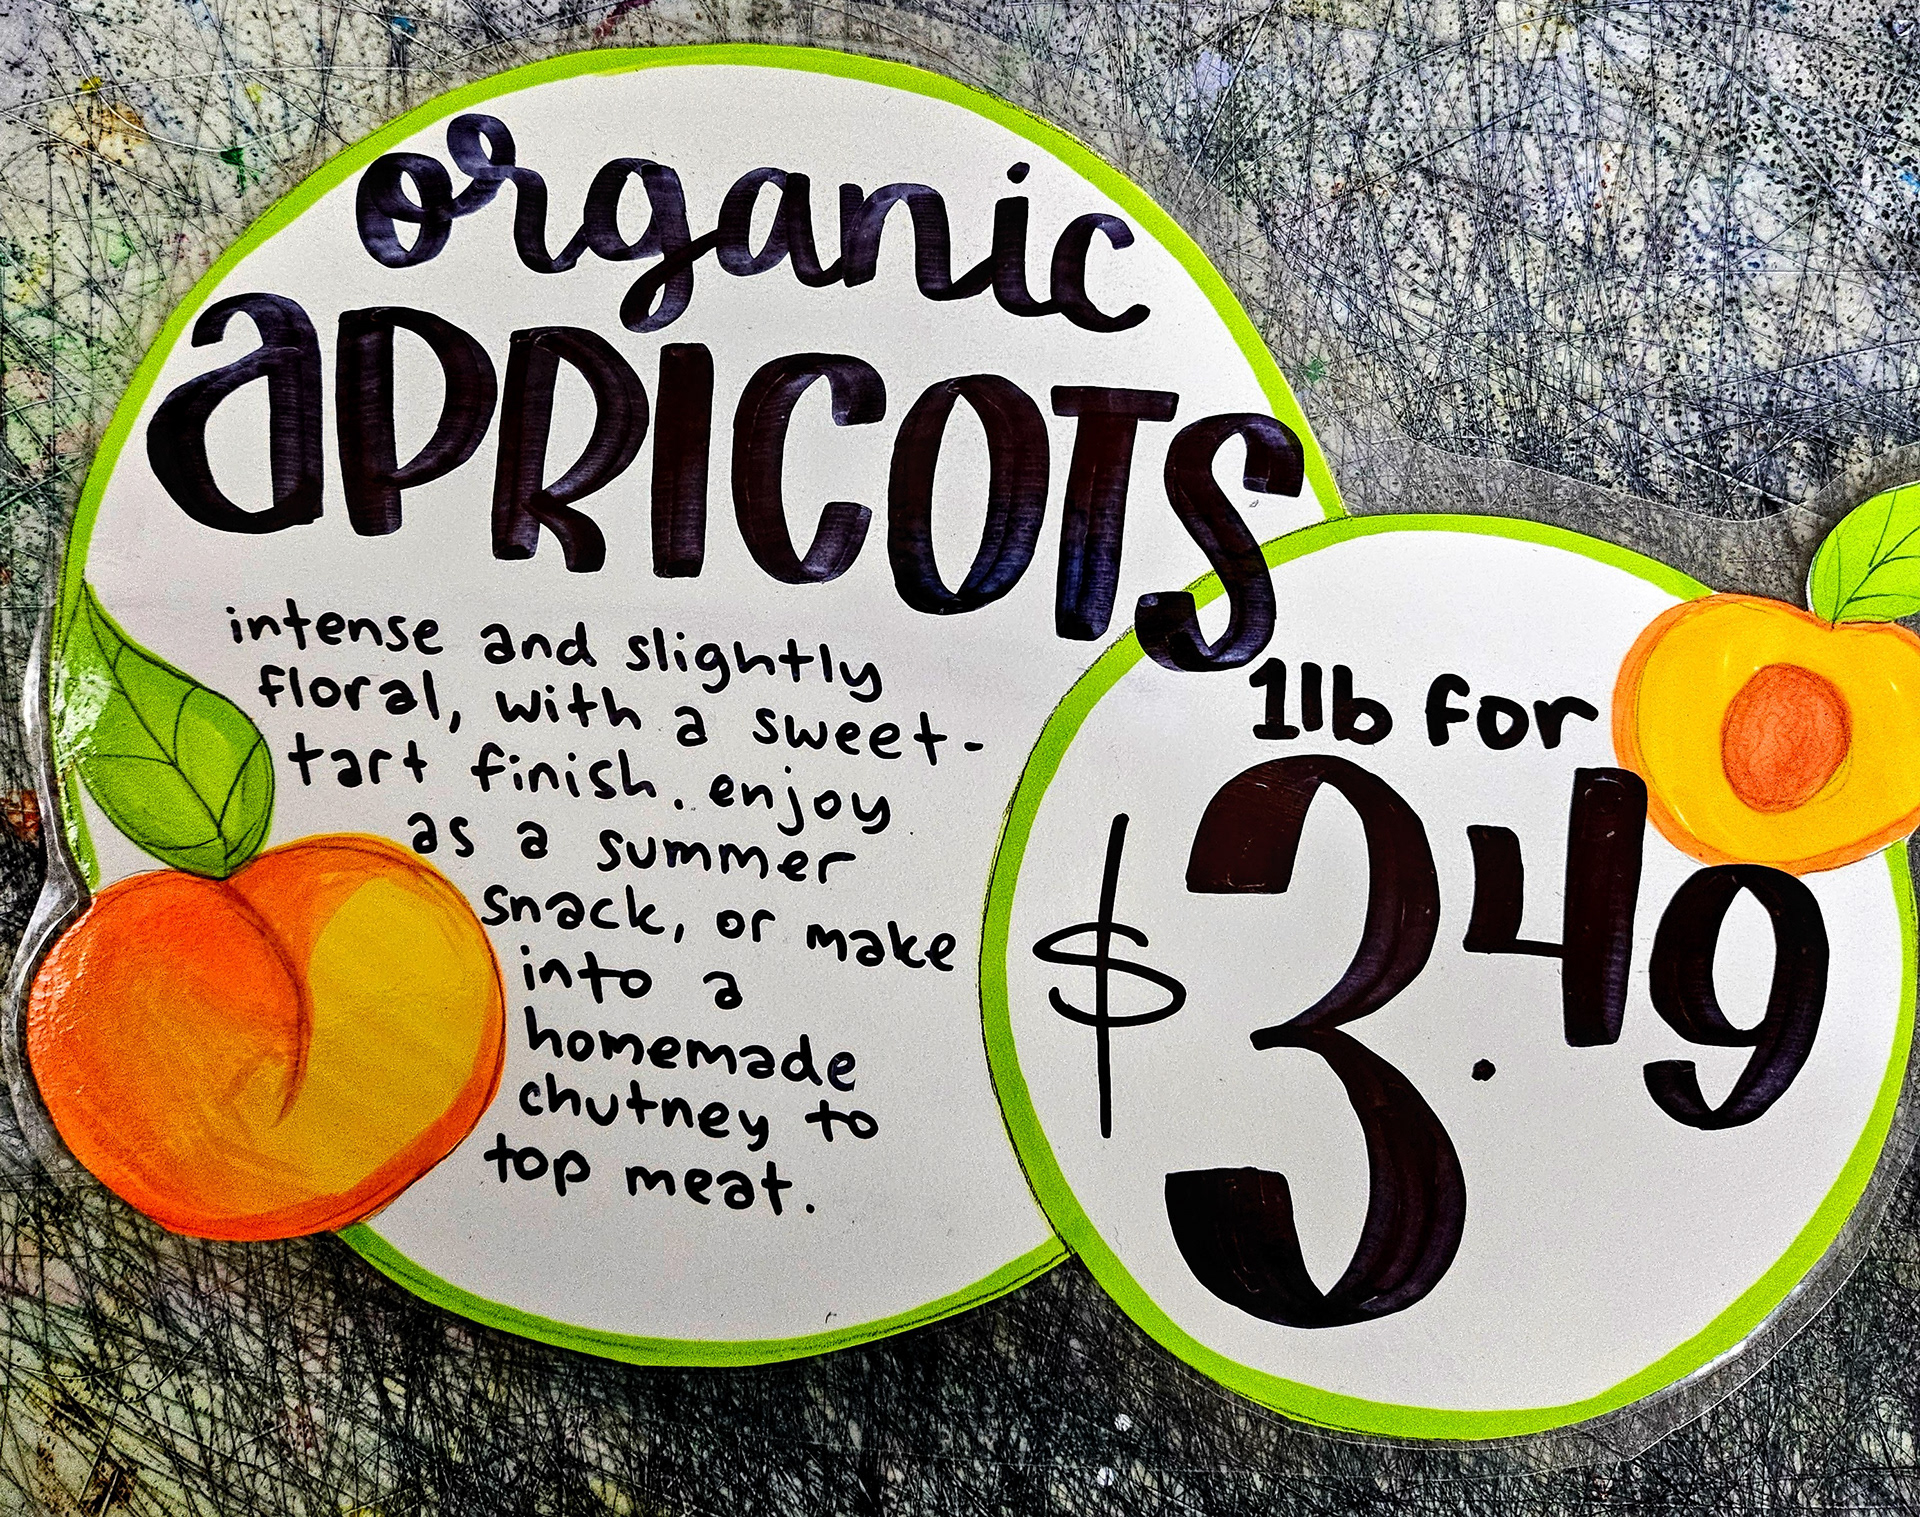 organic
APRICOTS
intense and slightly
floral, with a sweet-
tart finish. enjoy
as a summer
snack, or make
into a
homemade
chutney to
top meat.
1lb for
$3.49